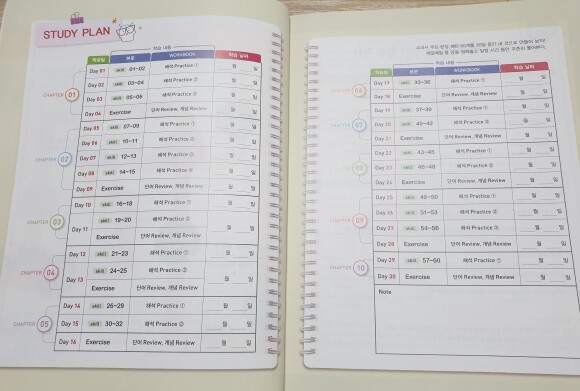 STUDY PLAN
학습 내용
학습일 본문 WORKBOOK 학습 날짜
CHAPTER 01
Day 01 skill 01~02 해석 Practice ① 월 일
Day 02 skill 03~04 해석 Practice ② 월 일
Day 03 skill 05~06 해석 Practice ③ 월 일
Day 04 Exercise 단어 Review, 개념 Review 월 일
CHAPTER 02
Day 05 skill 07~09 해석 Practice ① 월 일
Day 06 skill 10~11 해석 Practice ② 월 일
Day 07 skill 12~13 해석 Practice ③ 월 일
Day 08 skill 14~15 해석 Practice ④ 월 일
Day 09 Exercise 단어 Review, 개념 Review 월 일
CHAPTER 03
Day 10 skill 16~18 해석 Practice ① 월 일
Day 11 skill 19~20 해석 Practice ② 월 일
Exercise 단어 Review, 개념 Review
CHAPTER 04
Day 12 skill 21~23 해석 Practice ① 월 일
Day 13 skill 24~25 해석 Practice ② 월 일
Exercise 단어 Review, 개념 Review
CHAPTER 05
Day 14 skill 26~29 해석 Practice ① 월 일
Day 15 skill 30~32 해석 Practice ② 월 일
Day 16 Exercise 단어 Review, 개념 Review 월 일
학습 내용
학습일 본문 WORKBOOK 학습 날짜
CHAPTER 06
Day 17 skill 33~36 해석 Practice ① 월 일
Day 18 Exercise 단어 Review, 개념 Review 월 일
CHAPTER 07
Day 19 skill 37~39 해석 Practice ① 월 일
Day 20 skill 40~42 해석 Practice ② 월 일
Day 21 Exercise 단어 Review, 개념 Review 월 일
CHAPTER
Day 22 skill 43~45 해석 Practice ① 월 일
Day 23 skill 46~48 해석 Practice ② 월 일
Day 24 Exercise 단어 Review, 개념 Review 월 일
CHAPTER 09
Day 25 skill 49~50 해석 Practice ① 월 일
Day 26 skill 51~53 해석 Practice ② 월 일
Day 27 skill 54~56 해석 Practice ③ 월 일
Day 28 Exercise 단어 Review, 개념 Review 월 일
CHAPTER 10
Day 29 skill 57~60 해석 Practice ① 월 일
Day 30 Exercise 단어 Review, 개념 Review 월 일
Note